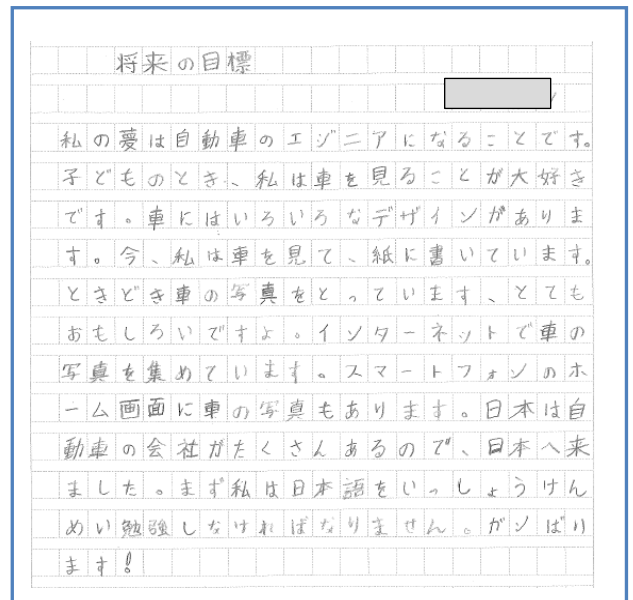 将来の目標
私の夢は自動車のエジニアになることです。
子どものとき、私は車を見ることが大好き
です。車にはいろいろなデザインがありま
す。今、私は車を見て、紙に書いています。
ときどき車の写真をとっています、とても
おもしろいですよ。インターネットで車の
写真を集めています。スマートフォンのホ
ーム画面に車の写真もあります。日本は自
動車の会社がたくさんあるので、日本へ来
ました。まず私は日本語をいっしょうけん
めい勉強しなければなりません。ガンばり
ます!